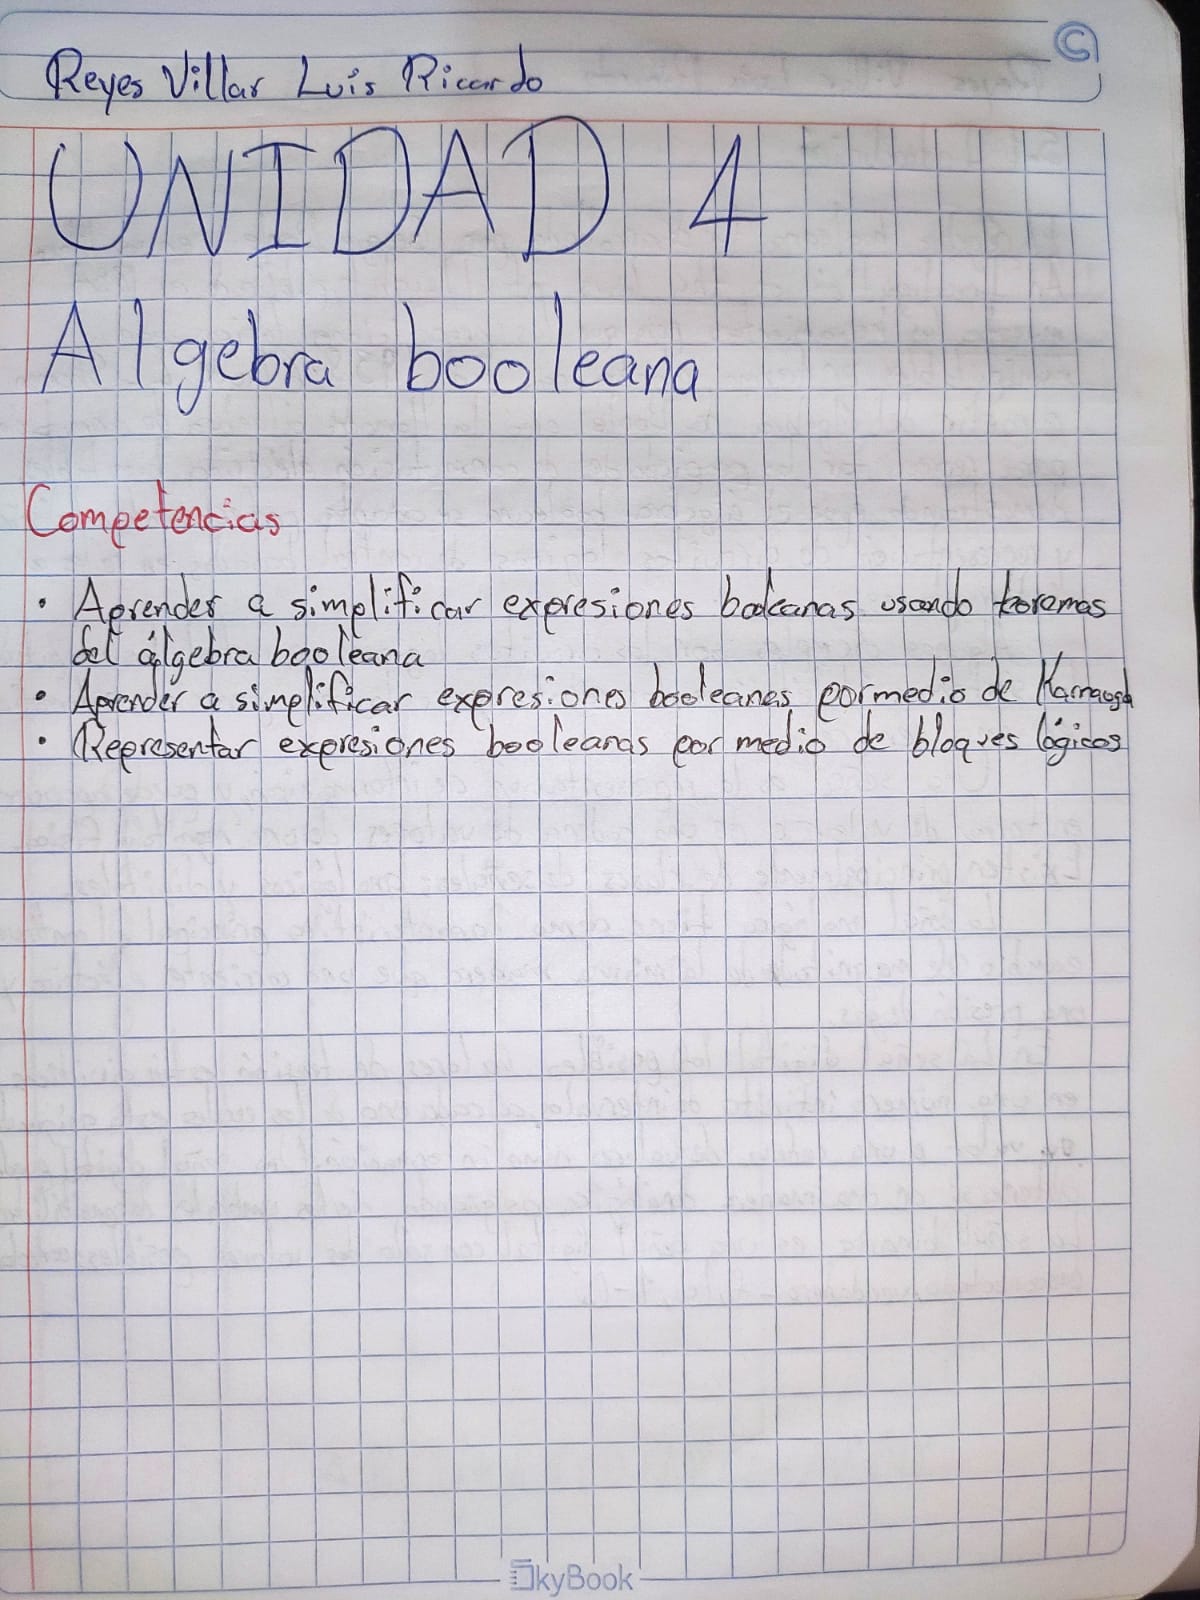 Reyes Villar Luis Ricardo
UNIDAD 4
Algebra booleana
Competencias
• Aprender a simplificar expresiones booleanas usando teoremas
del álgebra booleana
• Aprender a simplificar expresiones booleanas por medio de Karnaugh
• Representar expresiones booleanas por medio de bloques lógicos
SkyBook